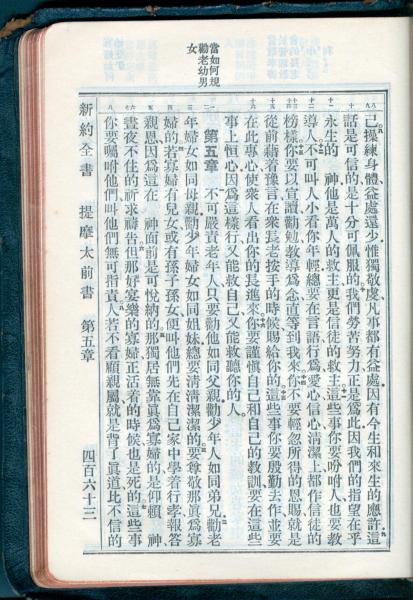 當如何規
勸老幼男
女
己操練身體益處還少、惟獨敬虔、凡事都有益處、因有今生和來生的應許。這
話是可信的、是十分可佩服的。我們勞苦努力、正是爲此、因我們的指望在乎
永生的 神、他是萬人的救主、更是信徒的救主。這些事你要吩咐人、也要教
導人。不可叫人小看你年輕、總要在言語行爲愛心信心清潔上、都作信徒的
榜樣。你要以宣讀勸勉教導爲念、直等到我來。你不要輕忽所得的恩賜、就是
從前藉着豫言、在衆長老按手的時候、賜給你的。這些事你要殷勤去作、並要
在此專心、使衆人看出你的長進來。你要謹愼自己和自己的教訓、要在這些
事上恒心、因爲這樣行、又能救自己、又能救聽你的人。
第五章 不可嚴責老年人、只要勸他如同父親、勸少年人如同弟兄。勸老
年婦女如同母親、勸少年婦女如同姐妹、總要清清潔潔的。要尊敬那眞爲寡
婦的。若寡婦有兒女、或有孫子孫女、便叫他們先在自己家中學着行孝、報答
親恩、因爲這在 神面前是可悅納的。那獨居無靠眞爲寡婦的、是仰賴 神、
晝夜不住的祈求禱告。但那好宴樂的寡婦、正活着的時候、也是死的。這些事
你要囑咐他們、叫他們無可指責。人若不看顧親屬、就是背了眞道、比不信的
新約全書 提摩太前書 第五章 四百六十三